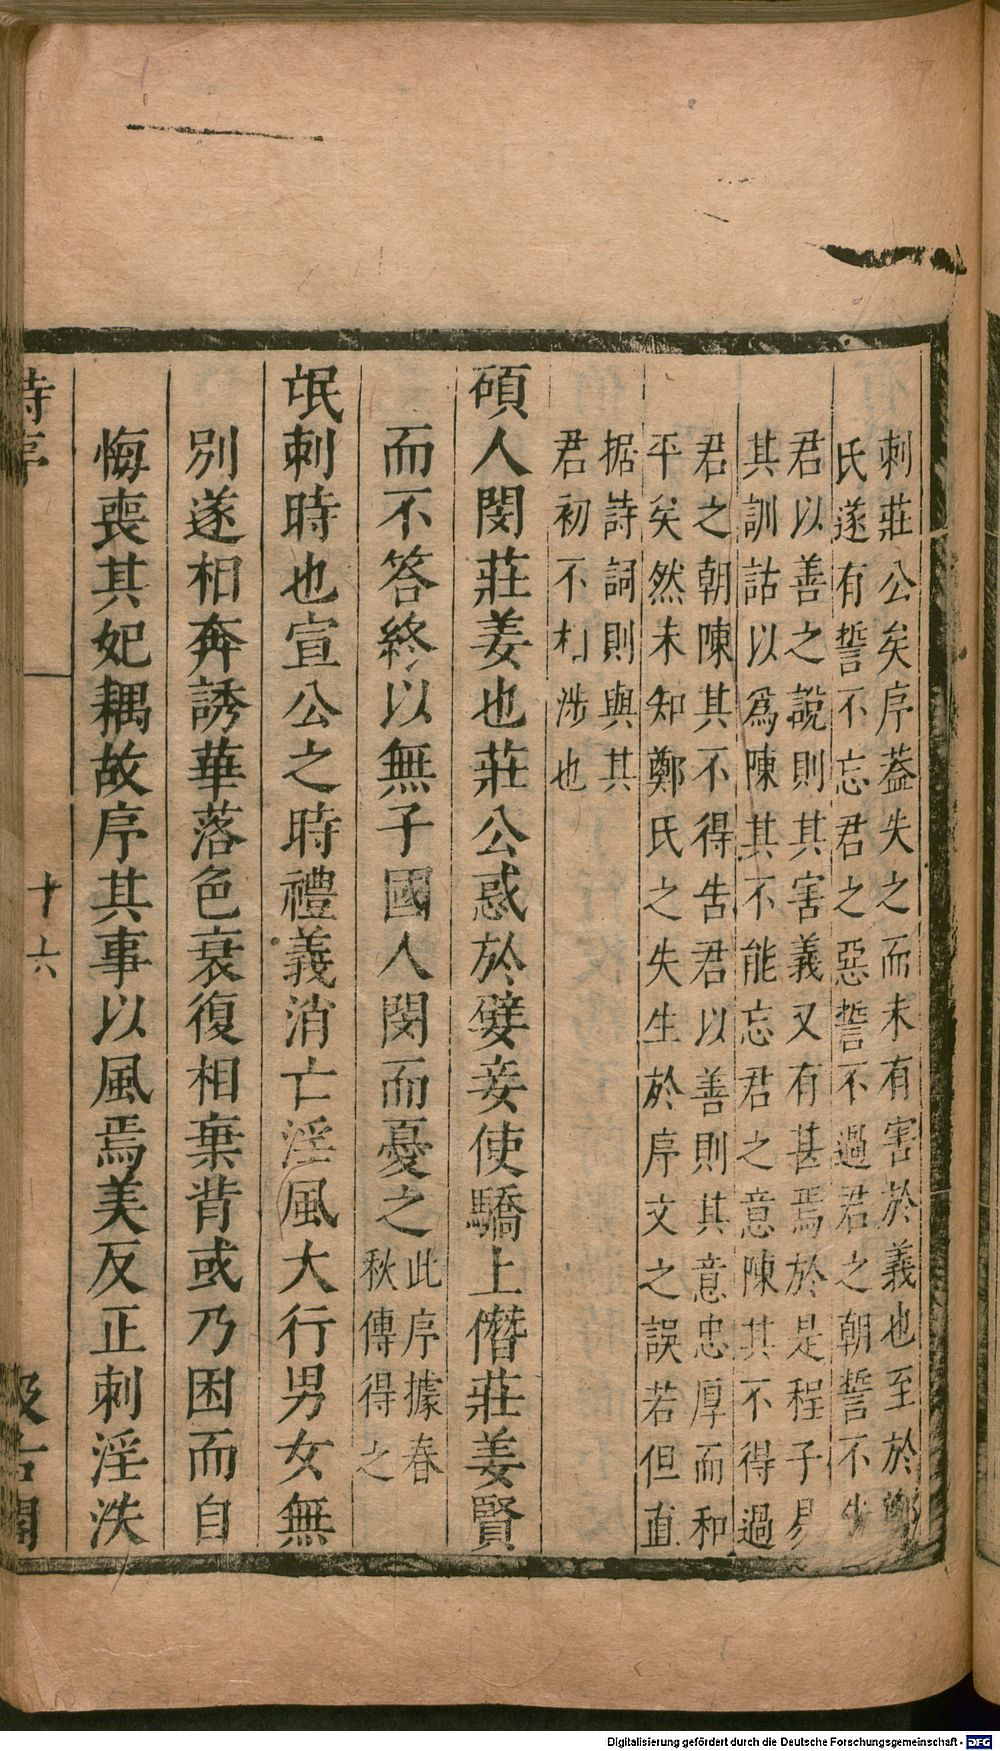 刺莊公矣序葢失之而未有害於義也至於鄭
氏遂有誓不忘君之惡誓不過君之朝誓不告
君以善之說則其害義又有甚焉於是程子易
其訓詁以為陳其不能忘君之意陳其不得過
君之朝陳其不得告君以善則其意忠厚而和
平矣然未知鄭氏之失生於序文之誤若但直
据詩詞則與其
君初不相涉也
碩人閔莊姜也莊公惑於嬖妾使驕上僭莊姜賢
而不答終以無子國人閔而憂之此序據春
秋傳得之
氓刺時也宣公之時禮義消亡淫風大行男女無
別遂相奔誘華落色衰復相棄背或乃困而自
悔喪其妃耦故序其事以風焉美反正刺淫泆
詩序
十六
汲古閣
Digitalisierung gefördert durch die Deutsche Forschungsgemeinschaft - DFG